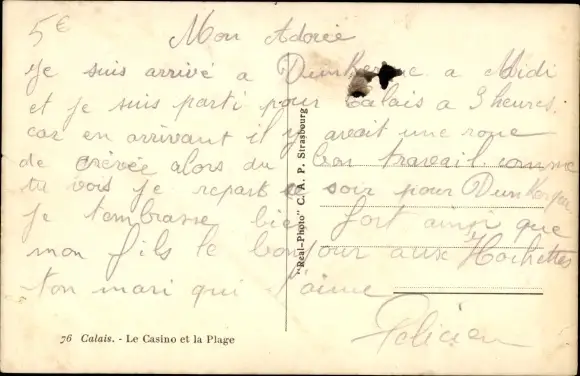 5€
Mon Adorée
Je suis arrivé a Dunkerque a Midi
et je suis parti pour Calais a 3 heures.
car en arrivant il y avait une roue
de crevée alors du bon travail comme
tu vois je repart ce soir pour Dunkerque
je t'embrasse bien fort ainsi que
mon fils le bonjour aux Hochettes
ton mari qui t'aime
Felicien
"Real-Photo" C. A. P. Strasbourg
76 Calais. - Le Casino et la Plage